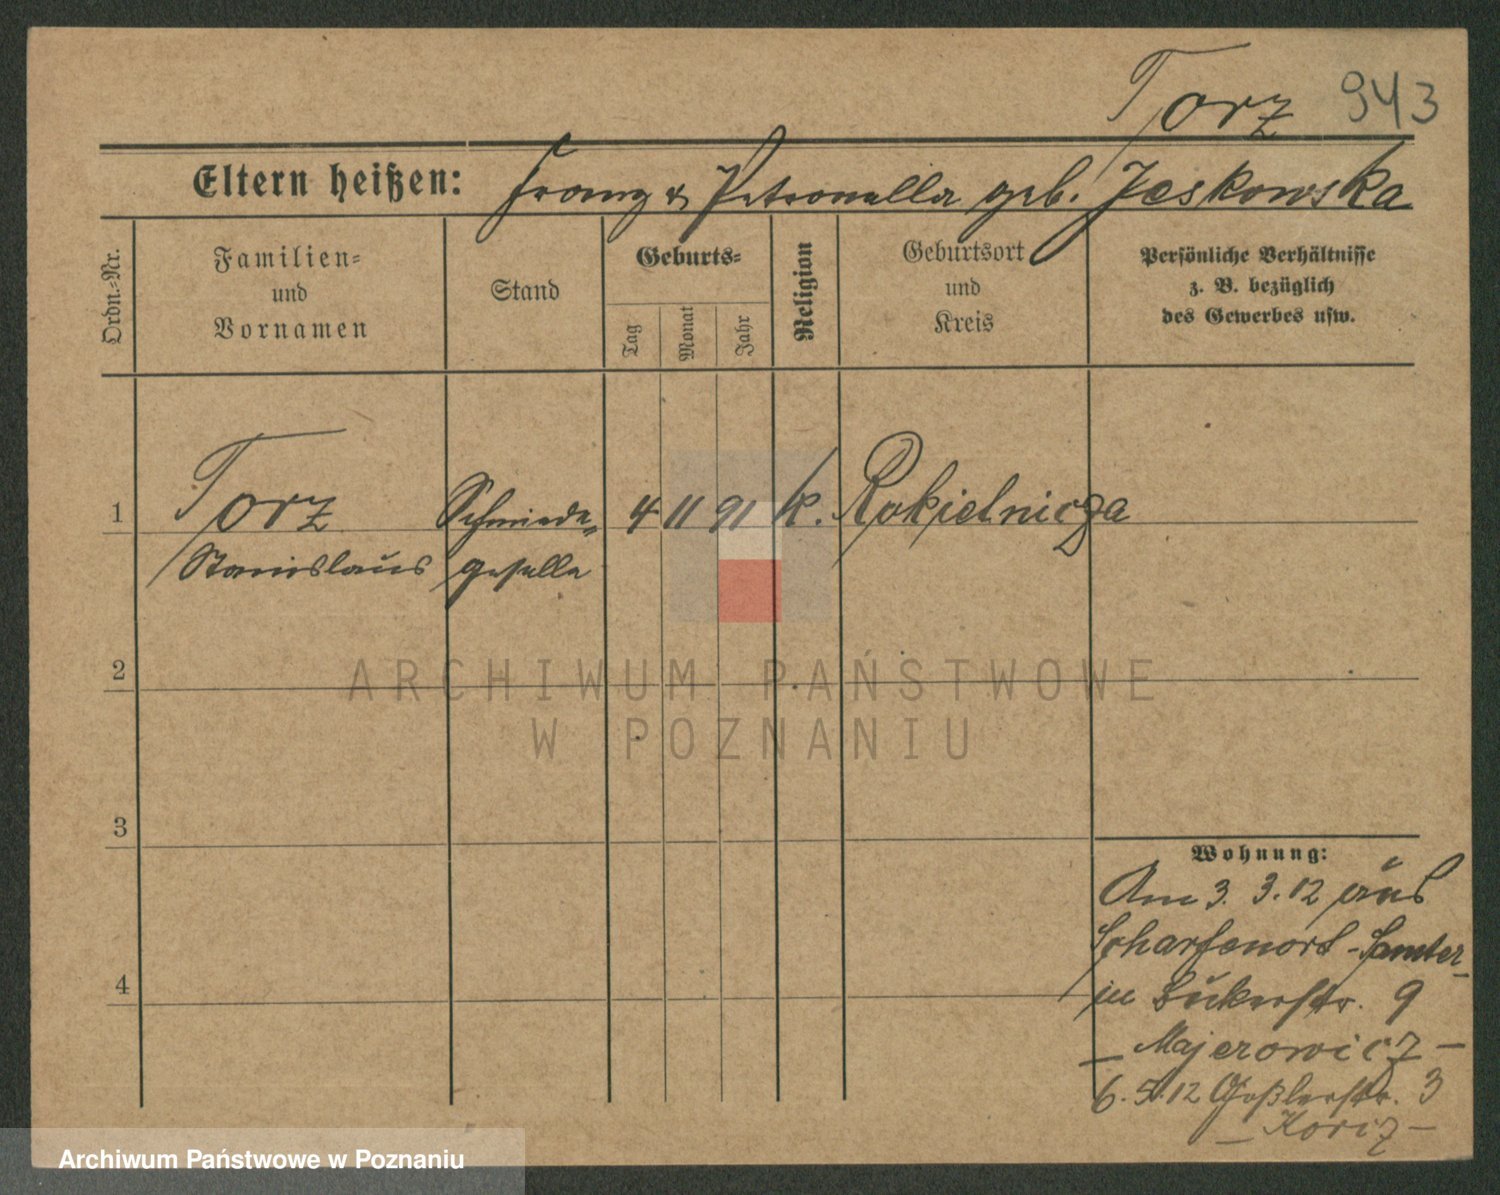 Torz 943
Eltern heißen: Franz & Petronella geb. Jeskowska
Ordn.-Nr.
Familien-
und
Vornamen
Stand
Geburts-
Tag
Monat
Jahr
Religion
Geburtsort
und
Kreis
Persönliche Verhältnisse
z. B. bezüglich
des Gewerbes usw.
1 Torz Schmiede- 4 11 91 k. Rokietnicza
Stanislaus geselle
2
ARCHIWUM PAŃSTWOWE
W POZNANIU
3
Wohnung:
Am 3. 3. 12 aus
Scharfenort - Samter
4
in Bukerstr. 9
– Majerowicz –
6. 5. 12 Goßlerstr. 3
– Koricz –
Archiwum Państwowe w Poznaniu